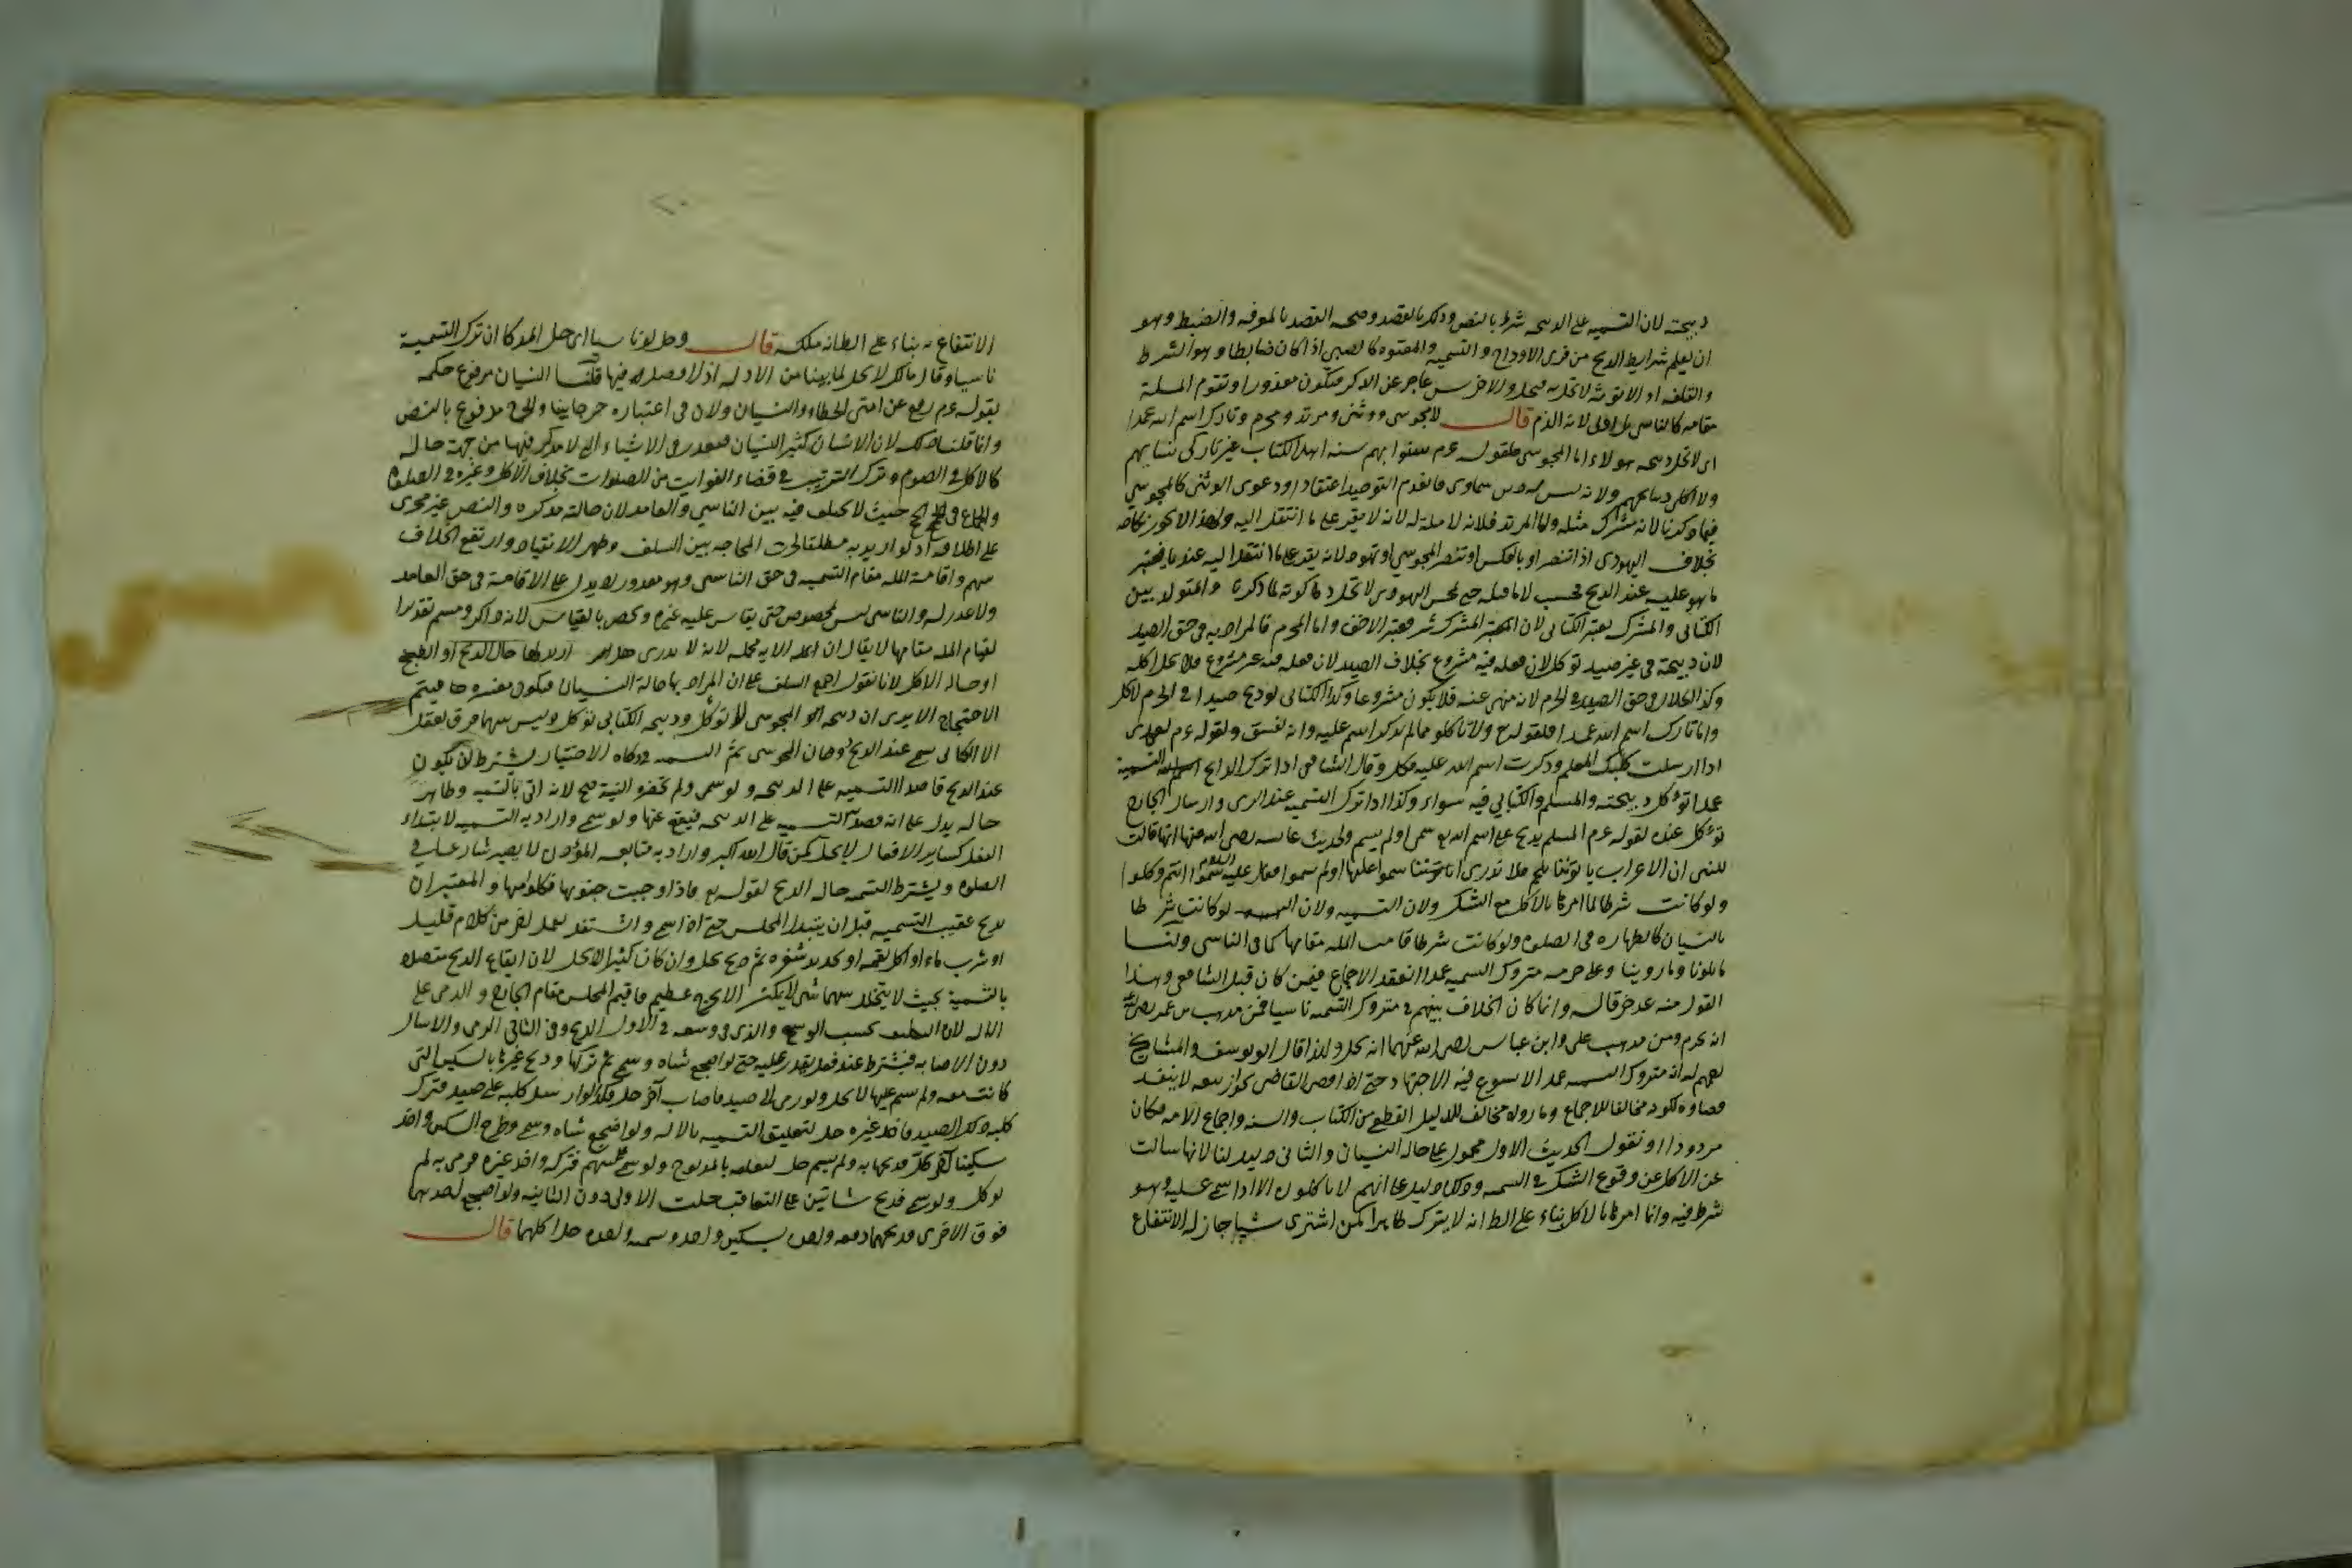 ذبيحته لان التسميه على الذبيحه شرط بالنص وذلك بالقصد وصحه القصد بالمعرفه والضبط وهو
ان يعلم شرايط الذبح من فرى الاوداج والتسميه والمعتوه كالصبي اذا كان ضابطا وهو الشرط
والقلفه او الانوثه لا تخل به فيحل والاخرس عاجز عن الذكر فيكون معذورا وتقوم الملة
مقامه كالناسي بل اولى لانه الزم قال لا مجوسى ووثنى ومرتد ومحرم وتارك اسم الله عمدا
اى لا تحل ذبيحه هولاء اما المجوسى فلقوله عم سنوا بهم سنة اهل الكتاب غير ناكحى نسايهم
ولا اكلى ذبايحهم ولانه ليس له دين سماوى فانعدم التوحيد اعتقادا ودعوى الوثنى كالمجوسي
فيما ذكرنا لانه مشرك مثله واما المرتد فلانه لا ملة له لانه لا يقر على ما انتقل اليه ولهذا لا يجوز نكاحه
بخلاف اليهودى اذا تنصر او بالعكس او تنصر المجوسي او تهود لانه يقر على ما انتقل اليه عندنا فيعتبر
ما هو عليه عند الذبح فحسب لا ما قبله حتى لو تمجس اليهودى لا تحل ذكوته لما ذكرنا والمتولد بين
الكتابى والمشرك يعتبر الكتابى لان المشرك شر فيعتبر الاخف واما المحرم فالمراد به فى حق الصيد
لان ذبيحته فى غير صيد توكل لان فعله فيه مشروع بخلاف الصيد لان فعله فيه غير مشروع فلا يحل اكله
وكذا الحلال فى حق الصيد فى الحرم لانه منهى عنه فلا يكون مشروعا وكذا الكتابى لو ذبح صيدا فى الحرم لا يحل
واما تارك اسم الله عمدا فلقوله تع ولا تاكلوا مما لم يذكر اسم الله عليه وانه لفسق ولقوله عم لعدى
اذا ارسلت كلبك المعلم وذكرت اسم الله عليه فكل وقال الشافعى اذا ترك الذابح التسمية
عمدا توكل ذبيحته والمسلم والكتابي فيه سواء وكذا اذا ترك التسميه عند الرمى وارسال الجارح
توكل عنده لقوله عم المسلم يذبح على اسم الله سمى او لم يسم ولحديث عايشه رضى الله عنها انها قالت
للنبى ان الاعراب ياتوننا بلحم فلا ندرى اسموا عليها او لم يسموا فقال عليه السلام سموا انتم وكلوا
ولو كانت شرطا لما امرنا بالاكل مع الشك ولان التسميه لو كانت شرطا
بالنسيان كالطهاره فى الصلوه ولو كانت شرطا قامت الملة مقامها كما فى الناسى ولنا
ما تلونا وما روينا وعلى حرمه متروك التسميه عمدا انعقد الاجماع فيمن كان قبل الشافعى وهذا
القول منه عد خرقا له وانما كان الخلاف بينهم فى متروك التسميه ناسيا فمن مذهب بن عمر رضى الله
انه يحرم ومن مذهب على وابن عباس رضى الله عنهما انه يحل ولهذا قال ابو يوسف والمشايخ
رحمهم الله ان متروك التسميه عمدا لا يسوغ فيه الاجتهاد حتى اذا قضى القاضى بجواز بيعه لا ينفذ
قضاوه لكونه مخالفا للاجماع وما رواه مخالف للدليل القطعى من الكتاب والسنه واجماع الامه فكان
مردودا او نقول الحديث الاول محمول على حالة النسيان والثانى دليل لنا لانها سالت
عن الاكل عن وقوع الشك فى التسميه وذلك دليل على انهم لا ياكلون الا اذا سمى عليه وهو
شرط فيه وانما امرنا بالاكل بناء على الظ انه لا يترك ظاهرا كمن اشترى شيا جاز له الانتفاع
الانتفاع به بناء على الظ انه ملكه قال وحل لو ناسيا اى حل المذكى ان ترك التسمية
ناسيا وقال مالك لا يحل لما بينا من الادله اذ لا فصل فيها قلنا النسيان مرفوع حكمه
بقوله عم رفع عن امتى الخطاء والنسيان ولان فى اعتباره حرجا بينا والحرج مدفوع بالنص
وانما قلنا ذلك لان الانسان كثير النسيان فيعذر فى الاشياء التى لا مذكر فيها من جهة حاله
كالاكل فى الصوم وترك الترتيب فى قضاء الفوايت من الصلوات بخلاف الاكل وغيره فى الصلوة
والجماع فى الحج حيث لا يختلف فيه بين الناسي والعامد لان حالته مذكره والنص غير مجرى
على اطلاقه اذ لو اريد به مطلقا لجرت المحاجه بين السلف وظهر الانقياد وارتفع الخلاف
بينهم واقامة الملة مقام التسميه فى حق الناسى وهو معذور لا يدل على الاقامة فى حق العامد
ولا عذر له والناسى ليس بمخصوص حتى يقاس عليه غيره ويخص بالقياس لانه ذاكر ومسم تقديرا
لقيام الملة مقامها لا يقال ان الايه مجمله لانه لا يدرى هل اريد بها حال الذبح او الطبخ
او حالة الاكل لانا نقول اجمع السلف على ان المراد بها حالة فيكون مفسره فيتم
الاحتجاج الا يرى ان ذبيحه المجوسى لا توكل وذبيحه الكتابى توكل وليس بينهما فرق يعقل
الا ان الكتابى يسمى عند الذبح دون المجوسى ثم التسميه فى ذكاة الاختيار يشترط ان يكون
عند الذبح قاصدا التسميه على الذبيحه ولو سمى ولم تحضره النية صح لانه اتى بالتسميه وظاهر
حاله يدل على انه قصد التسميه على الذبيحه فيقع عنها ولو سمى واراد به التسميه لابتداء
الفعل كساير الافعال لا يحل كمن قال الله اكبر واراد به متابعه الموذن لا يصير شارعا فى
الصلوه ويشترط التسميه حالة الذبح لقوله تع فاذا وجبت جنوبها فكلوا منها والمعتبر ان
يذبح عقيب التسميه قبل ان يتبدل المجلس حتى اذا سمى واشتغل بعمل اخر من كلام قليل
او شرب ماء او اكل لقمه او تحديد شفره ثم ذبح يحل وان كان كثيرا لا يحل لان ايقاع الذبح متصلا
بالتسمية بحيث لا يتخلل بينهما شى لا يمكن الا بحرج عظيم فاقيم المجلس مقام والرمى على
الاله لان التكليف بحسب الوسع والذى فى وسعه فى الاول الذبح وفى الثانى الرمى والارسال
دون الاصابه فيشترط عند فعل يقدر عليه حتى لو اضجع شاه وسمى ثم تركها وذبح غيرها بالسكين التى
كانت معه ولم يسم عليها لا يحل ولو رمى الى صيد فاصاب آخر حل وكذا لو ارسل كلبه على صيد فترك
كلبه ذلك الصيد فاخذ غيره حل لتعليق التسميه بالاله ولو اضجع شاه وسمى وطرح السكين واخذ
سكينا آخر فذبحها به ولم يسم حل لتعلقه بالمذبوح ولو سمى على سهم فتركه واخذ غيره فرمى به لم
يوكل ولو سمى فذبح شاتين على التعاقب حلت الاولى دون الثانيه ولو اضجع احديهما
فوق الاخرى فذبحهما دفعه واحده بسكين واحد وتسميه واحده حل اكلهما قال